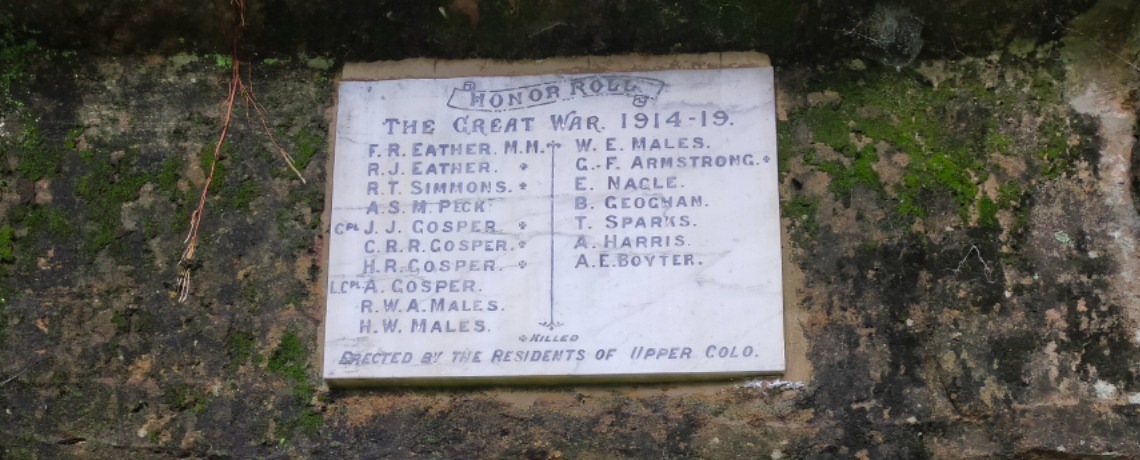 HONOR ROLL
THE GREAT WAR. 1914-19.
F. R. EATHER. M.M.
R. J. EATHER.
R. T. SIMMONS.
A. S. M. PECK.
CPL J. J. GOSPER.
C. R. R. GOSPER.
H. R. GOSPER.
LCPL A. GOSPER.
R. W. A. MALES.
H. W. MALES.
W. E. MALES.
G. F. ARMSTRONG.
E. NAGLE.
B. GEOGHAN.
T. SPARKS.
A. HARRIS.
A. E. BOYTER.
KILLED
ERECTED BY THE RESIDENTS OF UPPER COLO.